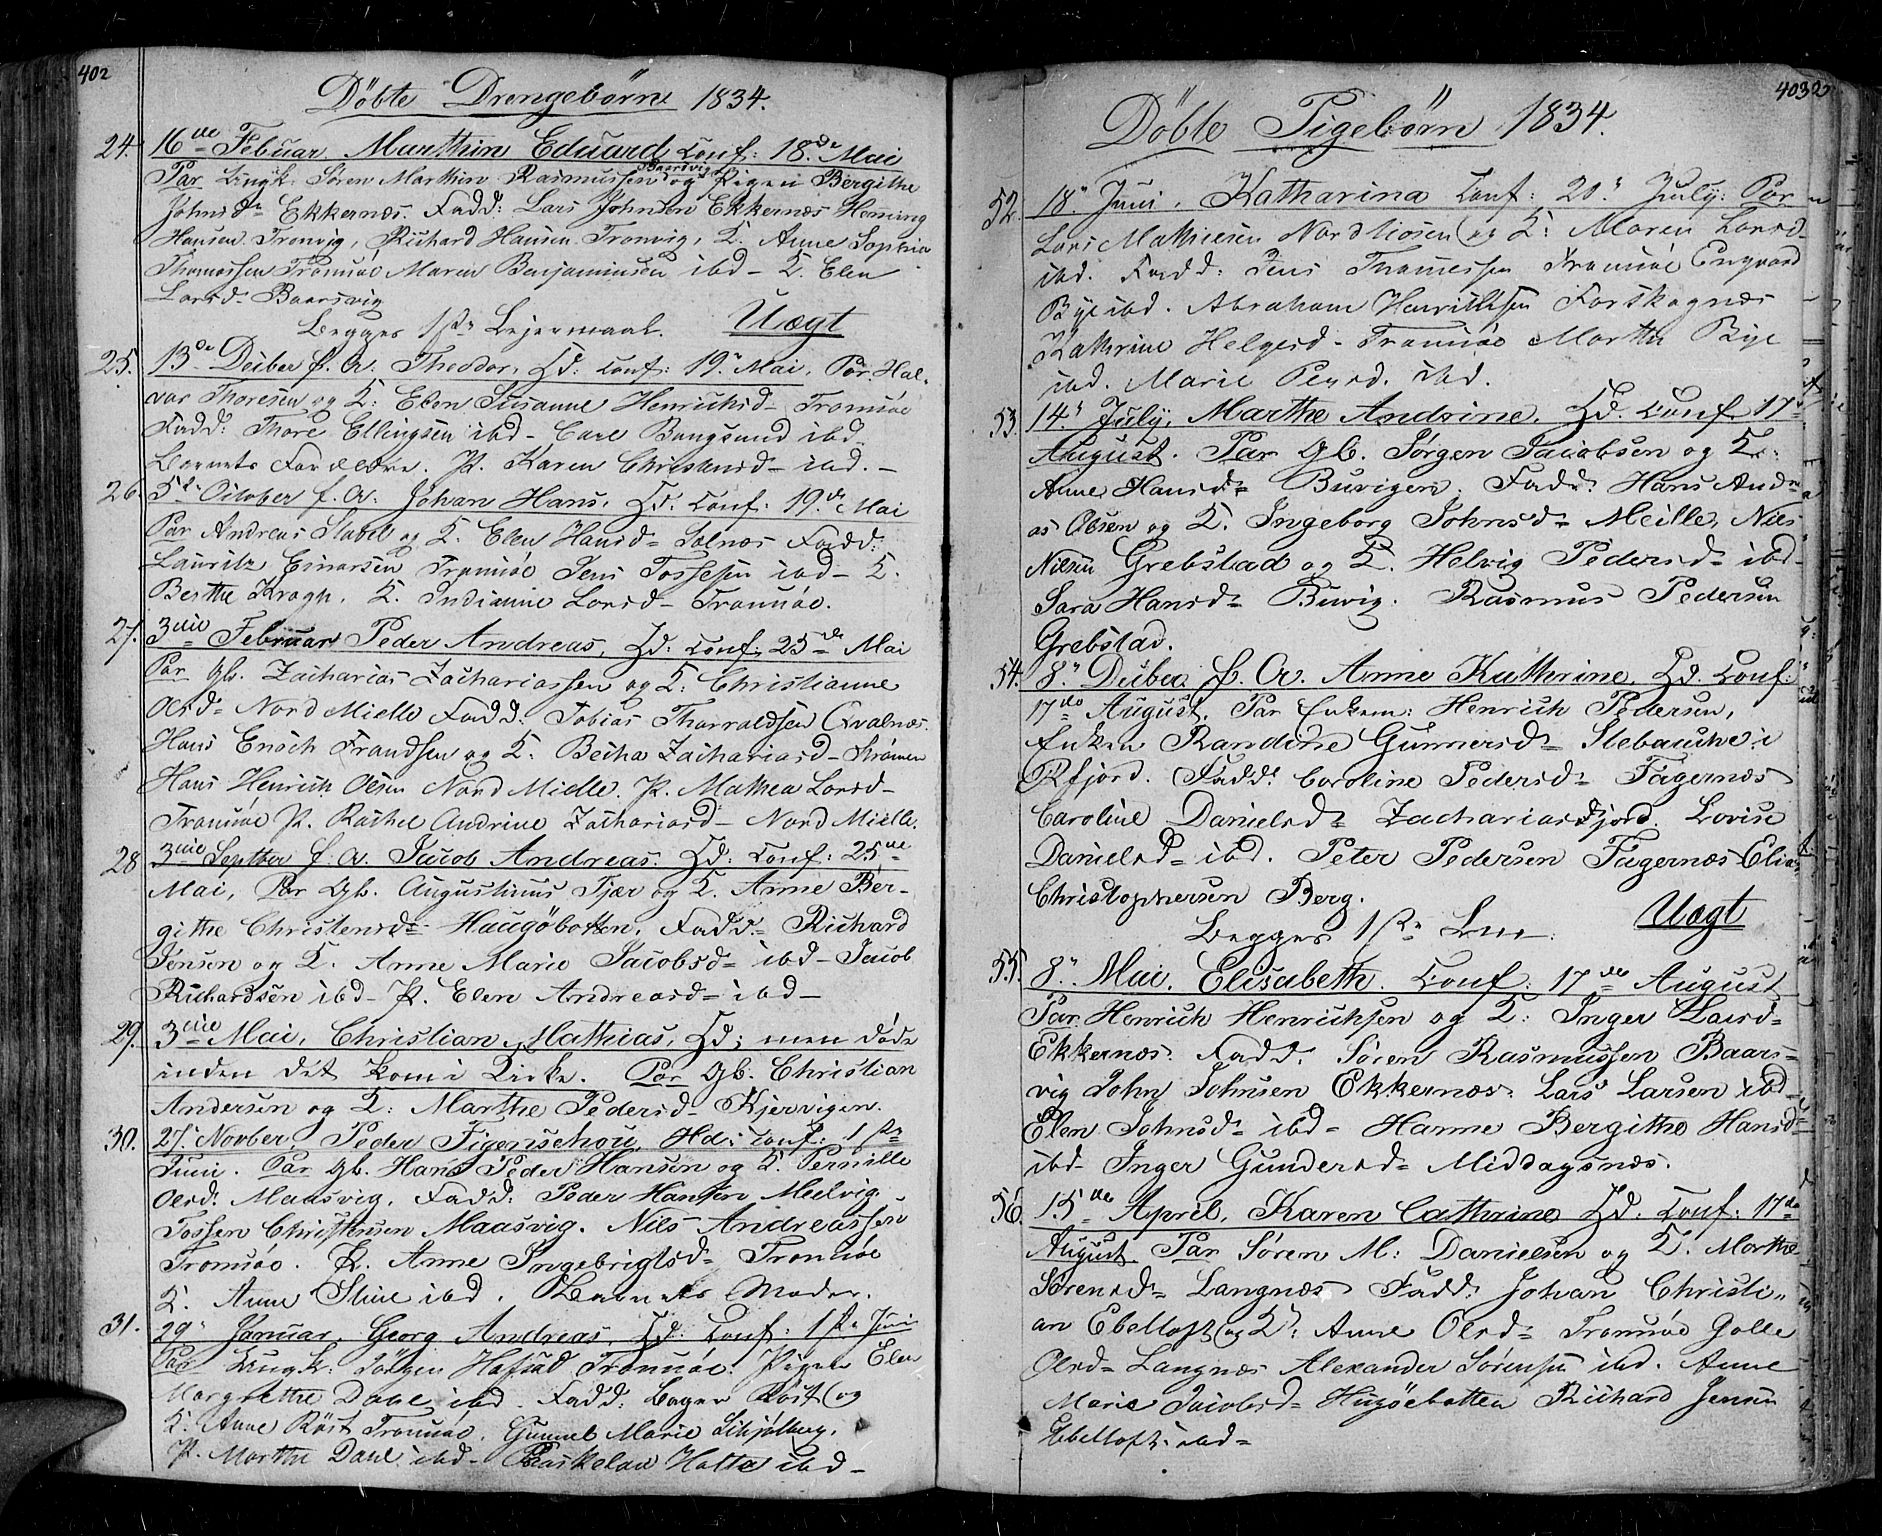 402
Döbte Drengebörn 1834.
24. 16de Febuar Marthin Eduard Conf: 18de Mai
Par Ungk: Sören Marthin Rasmussen Baarsvig og Pigen Bergithe
Johnsd= Ekkernæs. Fadd: Lars Johnsen Ekkernæs Henning
Hansen Tronvig, Richard Hansen Tronvig, K. Anne Sophia
Thomassen Tromsöe Maren Benjaminsen ibd- K. Elen
Larsd- Baarsvig
Begges 1ste Lejermaal. Uægt
25. 13de Decber f. A. Theodor, Hd: Conf: 19. Mai, Par: Hal-
var Thoresen og K: Elen Susanne Henrichsd- Tromsöe
Fadd: Thore Ellingsen ibd- Carl Bangsund ibd-
Barnets Forældre. P. Karen Christensd- ibd.-
26. 5te October f. A. Johan Hans, Hd: Conf: 19de Mai
Par Andreas Stabel og K. Elen Hansd= Solnæs Fadd:
Lauritz Einersen Tromsöe Jens Tossesen ibd- K.
Berthe Kragh. K. Indianne Larsd- Tromsöe.
27. 3die Februar Peder Andreas, Hd: Conf: 25de Mai
Par Gb. Zacharias Zachariassen og K: Christianne
Olsd= Nord Mielle Fadd: Tobias Tharraldsen Qvalnæs.
Hans Enoch Frandsen og K: Becha Zachariasd- Strömen
Hans Henrich Olsen Nord Mielle. P. Mathea Larsd-
Tromsöe P. Rachel Andrine Zachariasd- Nord Mielle.
28 3die Septber f. A. Jacob Andreas. Hd: Conf: 25de
Mai, Par Gb. Augustinus Fjær og K. Anne Ber-
githe Christensd= Haugöbotten, Fadd= Richard
Jensen og K. Anne Marie Jacobsd= ibd- Jacob
Richardsen ibd- P. Elen Andreasd= ibd-
29. 3die Mai, Christian Mathias, Hd; men döde
inden det kom i Kirke. Par Gb. Christian
Andersen og K: Marthe Pedersd- Kjervigen.
30. 27. Novber Peder Figenschou Hd: Conf: 1ste
Juni. Par Gb. Hans Peder Hansen og K. Pernille
Olsd: Maasvig, Fadd: Peder Hansen Meelvig
Tossen Christensen Maasvig. Nils Andreassen
Tromsöe. P. Anne Ingebrigtsd= Tromsöe
K. Anne Stine ibd. Barnets Moder.
31. 29. Januar, Georg Andreas, Hd: Conf: 1ste Juni
Par Ungk: Jörgen Hafsad Tromsöe. Pigen Elen
Margrethe Dahl ibd. Fadd: Bager Röst og
K. Anne Röst Tromsöe. Gunnel Marie Schjölberg.
P. Marthe Dahl ibd- Paaskelau Holte ibd-
4032
Döbte Pigebörn 1834.
52. 18. Juni, Katharina Conf: 20. July: Par
Lars Mathiesen Nordkosen og K: Maren Larsd-
ibd. Fadd: Jens Thomessen Tromsöe Engvard
Bye ibd. Abraham Henrichsen Forskagnæs
Kathrine Helgesd- Tromsöe Marthe Bye
ibd. Marie Pegsd. ibd.
53. 14. July, Marthe Andrine. Hd. Conf 17de
August. Par Gb. Jörgen Jacobsen og K:
Anne Hansd= Buvigen. Fadd: Hans Andre-
as Olsen og K. Ingeborg Johnsd= Meille, Nils
Nilsen Grebstad og K. Helvig Pedersd= ibd-
Sara Hansd= Buvig. Rasmus Pedersen
Grebstad.
54. 8. Decber f. A. Anne Kathrine Hd. Conf:
17de August. Par Enkem: Henrich Pedersen,
Enken Randine Gunnersd= Slebausche i
Rfjord. Fadd: Caroline Pedersd= Fagernæs
Caroline Danielsd= Zachariasdfjord. Lovise
Danielsd= ibd. Peter Pedersen Fagernæs Elias
Christophersen Berg.
Begges 1ste Lm: Uægt
55. 8. Mai. Elisabeth. Conf: 17de August
Par Henrich Henrichsen og K: Inger Larsd=
Ekkernæs. Fadd. Sören Rasmussen Baars=
vig John Johnsen Ekkernæs. Lars Larsen ibd-
Elen Johnsd= ibd- Hanne Bergithe Hansd=
ibd- Inger Gundersd= Middagsnæs.
56. 15de April, Karen Cathrine Hd. Conf: 17de
August. Par Sören M: Danielsen og K. Marthe
Sörensd= Langnæs Fadd: Johan Christi-
an Ebeltoft og K: Anne Olsd= Tromsöe Golle
Olsd= Langnæs Alexander Sörensen ibd. Anne
Marie Jacobsd= Hugöebotten Richard Jensen
Ebeltoft ibd=